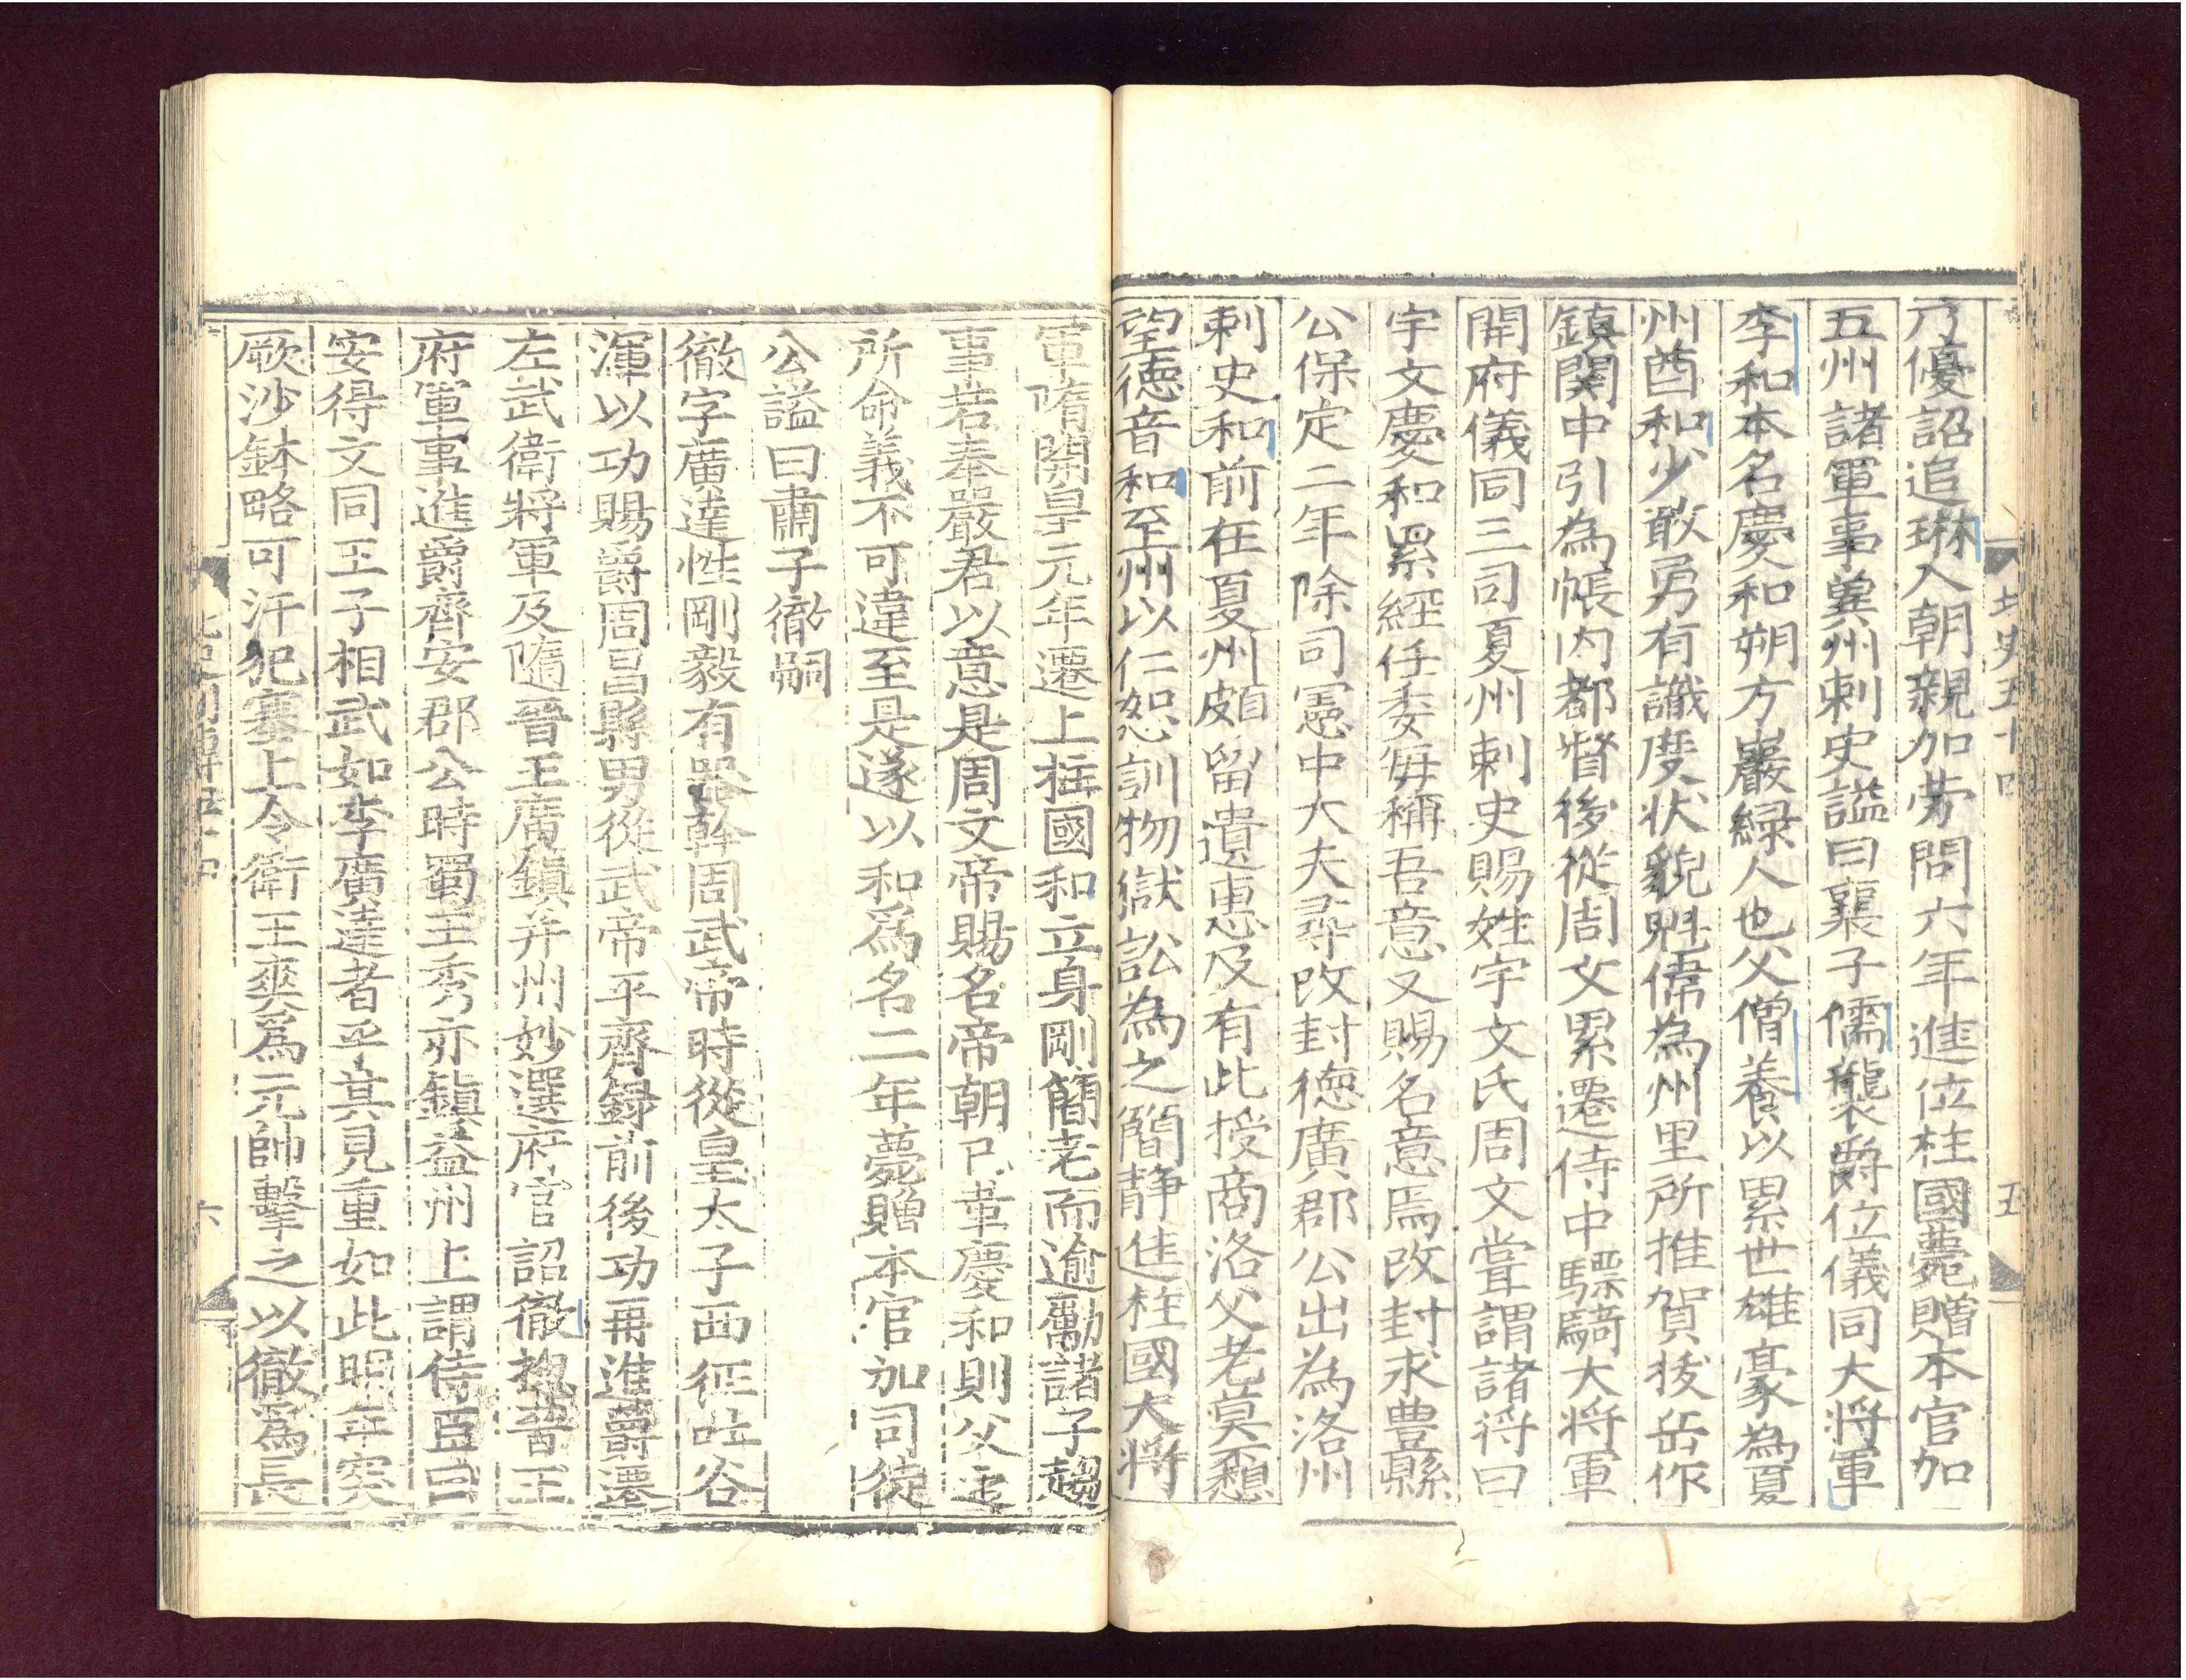 北史五十四
五
乃優詔追琳入朝親加劳問六年進位柱國薨贈本官加
五州諸軍事兾州刺史謚曰襄子儒襲爵位儀同大將軍
李和本名慶和朔方巖緑人也父僧養以累世雄豪為夏
州酋和少敢勇有識度状貌魁偉為州里所推賀拔岳作
鎮関中引為帳内都督後從周文累遷侍中驃騎大将軍
開府儀同三司夏州刺史賜姓宇文氏周文嘗謂諸将曰
宇文慶和累經任委毎稱吾意又賜名意焉改封永豊縣
公保定二年除司憲中大夫尋改封德廣郡公出為洛州
刺史和前在夏州頗留遺惠及有此授商洛父老莫不想
望德音和至州以仁恕訓物獄訟為之簡静進柱國大将
軍隋開皇元年遷上柱國和立身剛簡老而逾勵諸子趨
事若奉嚴君以意是周文帝賜名帝朝已革慶和則父之
所命義不可違至是遂以和爲名二年薨贈本官加司徒
公謚曰肅子徹嗣
徹字廣達性剛毅有器幹周武帝時從皇太子西征吐谷
渾以功賜爵周昌縣男從武帝平齊録前後功再進爵遷
左武衛將軍及隋晉王廣鎮并州妙選府官詔徹總晉王
府軍事進爵齊安郡公時蜀王秀亦鎮益州上謂侍臣曰
安得文同王子相武如李廣達者乎其見重如此明年突
厥沙鉢略可汗犯塞上令衛王爽爲元帥擊之以徹爲長
六